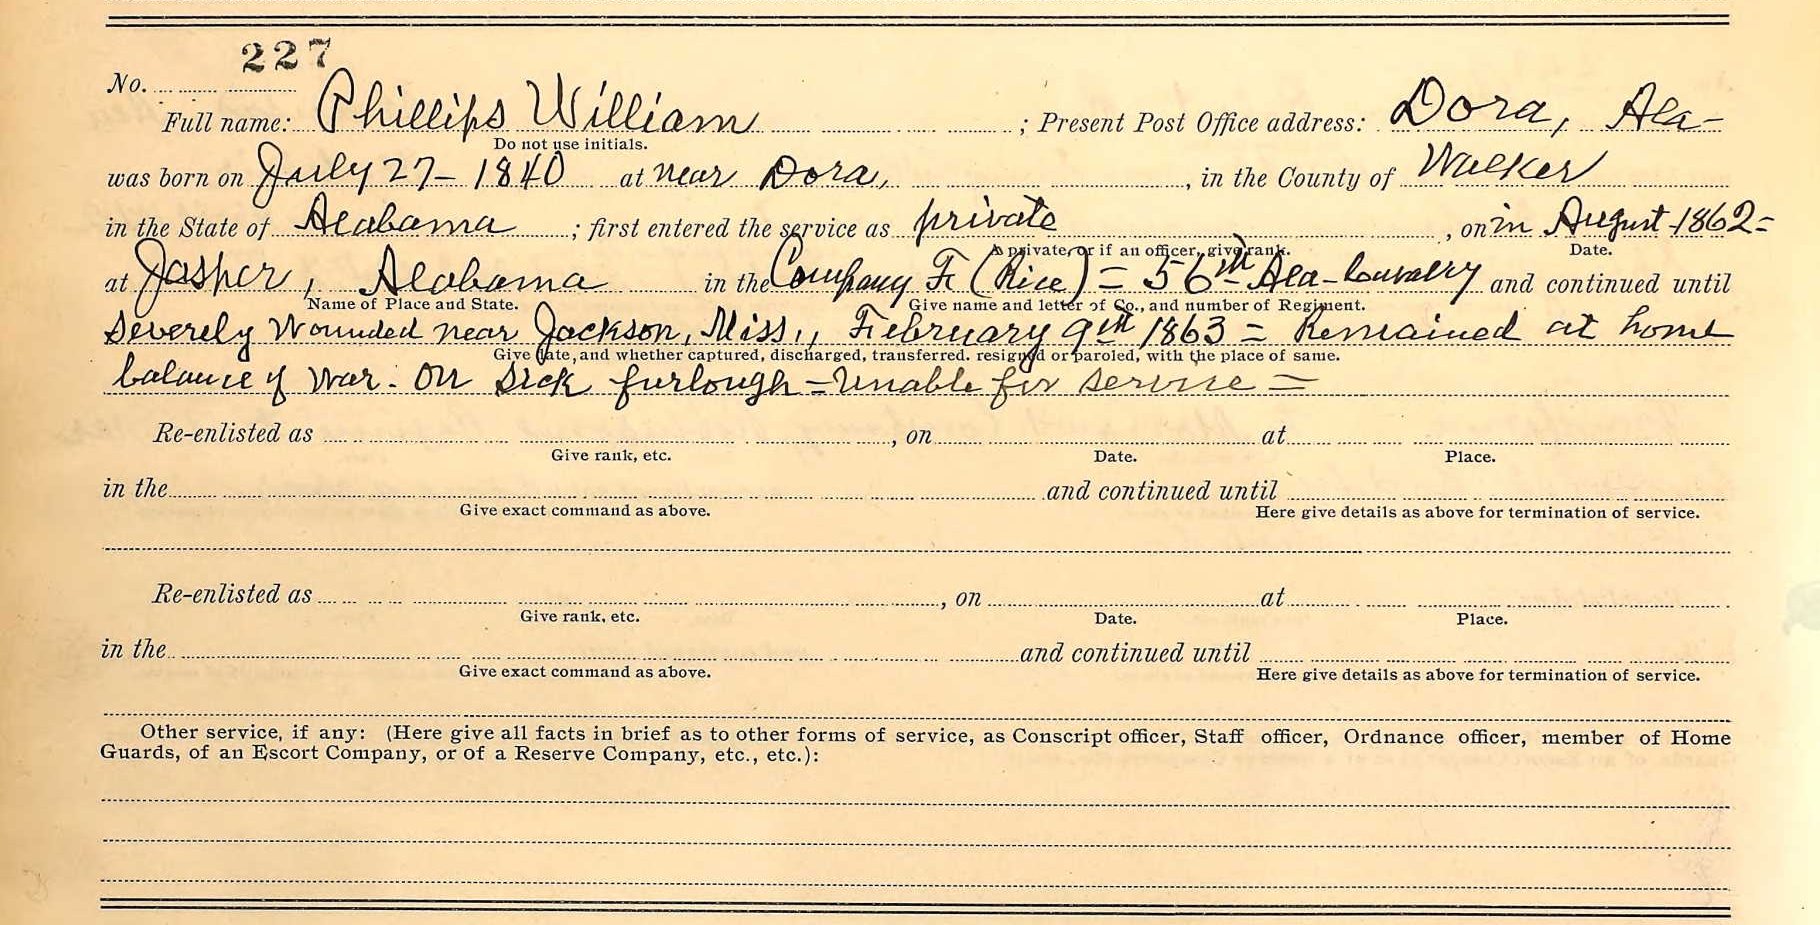 227
No.
Full name: Phillips William ; Present Post Office address: Dora, Ala-
Do not use initials.
was born on July 27- 1840 at near Dora, , in the County of Walker
in the State of Alabama ; first entered the service as private , on in August 1862=
A private, or if an officer, give rank. Date.
at Jasper, Alabama in the Company F. (Rice) = 56th Ala- Cavalry and continued until
Name of Place and State. Give name and letter of Co., and number of Regiment.
Severely Wounded near Jackson, Miss., February 9th 1863 = Remained at home
Give date, and whether captured, discharged, transferred. resigned or paroled, with the place of same.
balance of War. On Sick furlough = Unable for service =
Re-enlisted as , on at
Give rank, etc. Date. Place.
in the and continued until
Give exact command as above. Here give details as above for termination of service.
Re-enlisted as , on at
Give rank, etc. Date. Place.
in the and continued until
Give exact command as above. Here give details as above for termination of service.
Other service, if any: (Here give all facts in brief as to other forms of service, as Conscript officer, Staff officer, Ordnance officer, member of Home
Guards, of an Escort Company, or of a Reserve Company, etc., etc.):